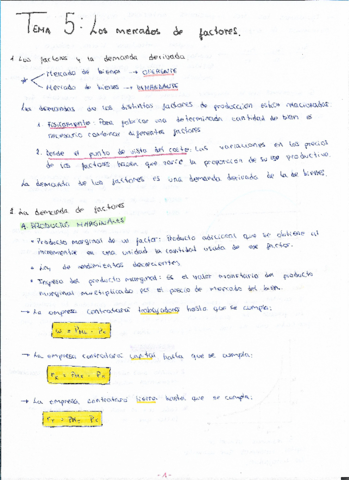 TEMA 5: Los mercados de factores.
1. Los factores y la demanda derivada
* Mercado de bienes → OFERENTE
Mercado de bienes → DEMANDANTE
Las demandas de los distintos factores de producción están relacionadas
1. Físicamente: Para fabricar una determinada cantidad de bien es
necesario combinar diferentes factores
2. Desde el punto de vista del coste: Las variaciones en los precios
de los factores hacen que varíe la proporción de su uso productivo.
La demanda de los factores es una demanda derivada de la de bienes.
2. La demanda de factores
A. PRODUCTOS MARGINALES
• Producto marginal de un factor: Producto adicional que se obtiene al
incrementar en una unidad la cantidad usada de ese factor.
• Ley de rendimientos decrecientes
• Ingreso del producto marginal: Es el valor monetario del producto
marginal multiplicado por el precio de mercado del bien.
→ La empresa contratará trabajadores hasta que se cumpla:
→ La empresa contratará capital hasta que se cumpla:
→ La empresa contratará tierra hasta que se cumpla:
- 1 -